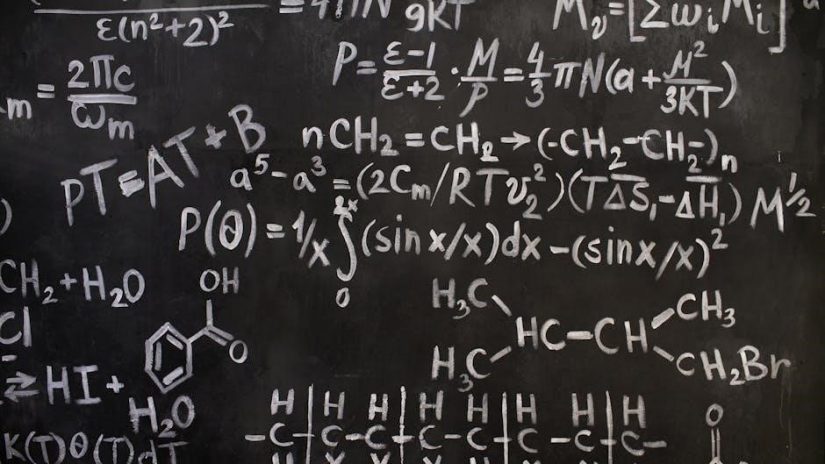 ε(n²+2)² = 4πN 9KT M_v=[Σω_iM_i]
P = (ε-1)/(ε+2) · M/ρ = 4/3 πN(a + M²/3KT)
m = 2πc/ω_m
PT = AT + B
nCH₂ = CH₂ → (-CH₂-CH₂-)ₙ
a⁵ - a³ = (2C_m/RTv₂²)(TΔS₁-ΔH₁) M^½
P(θ) = 1/x ∫₀^2x (sin x/x)dx - (sinx/x)²
CH₂ + H₂O
OH
O
Cl
⇌ HI +
H₂O
H₃C CH₃
HC-CH
H₃C CH₂Br
K(T)θ(T)dT
H H H H H H H H
-C-C-C-C-C-C-C-C-
O